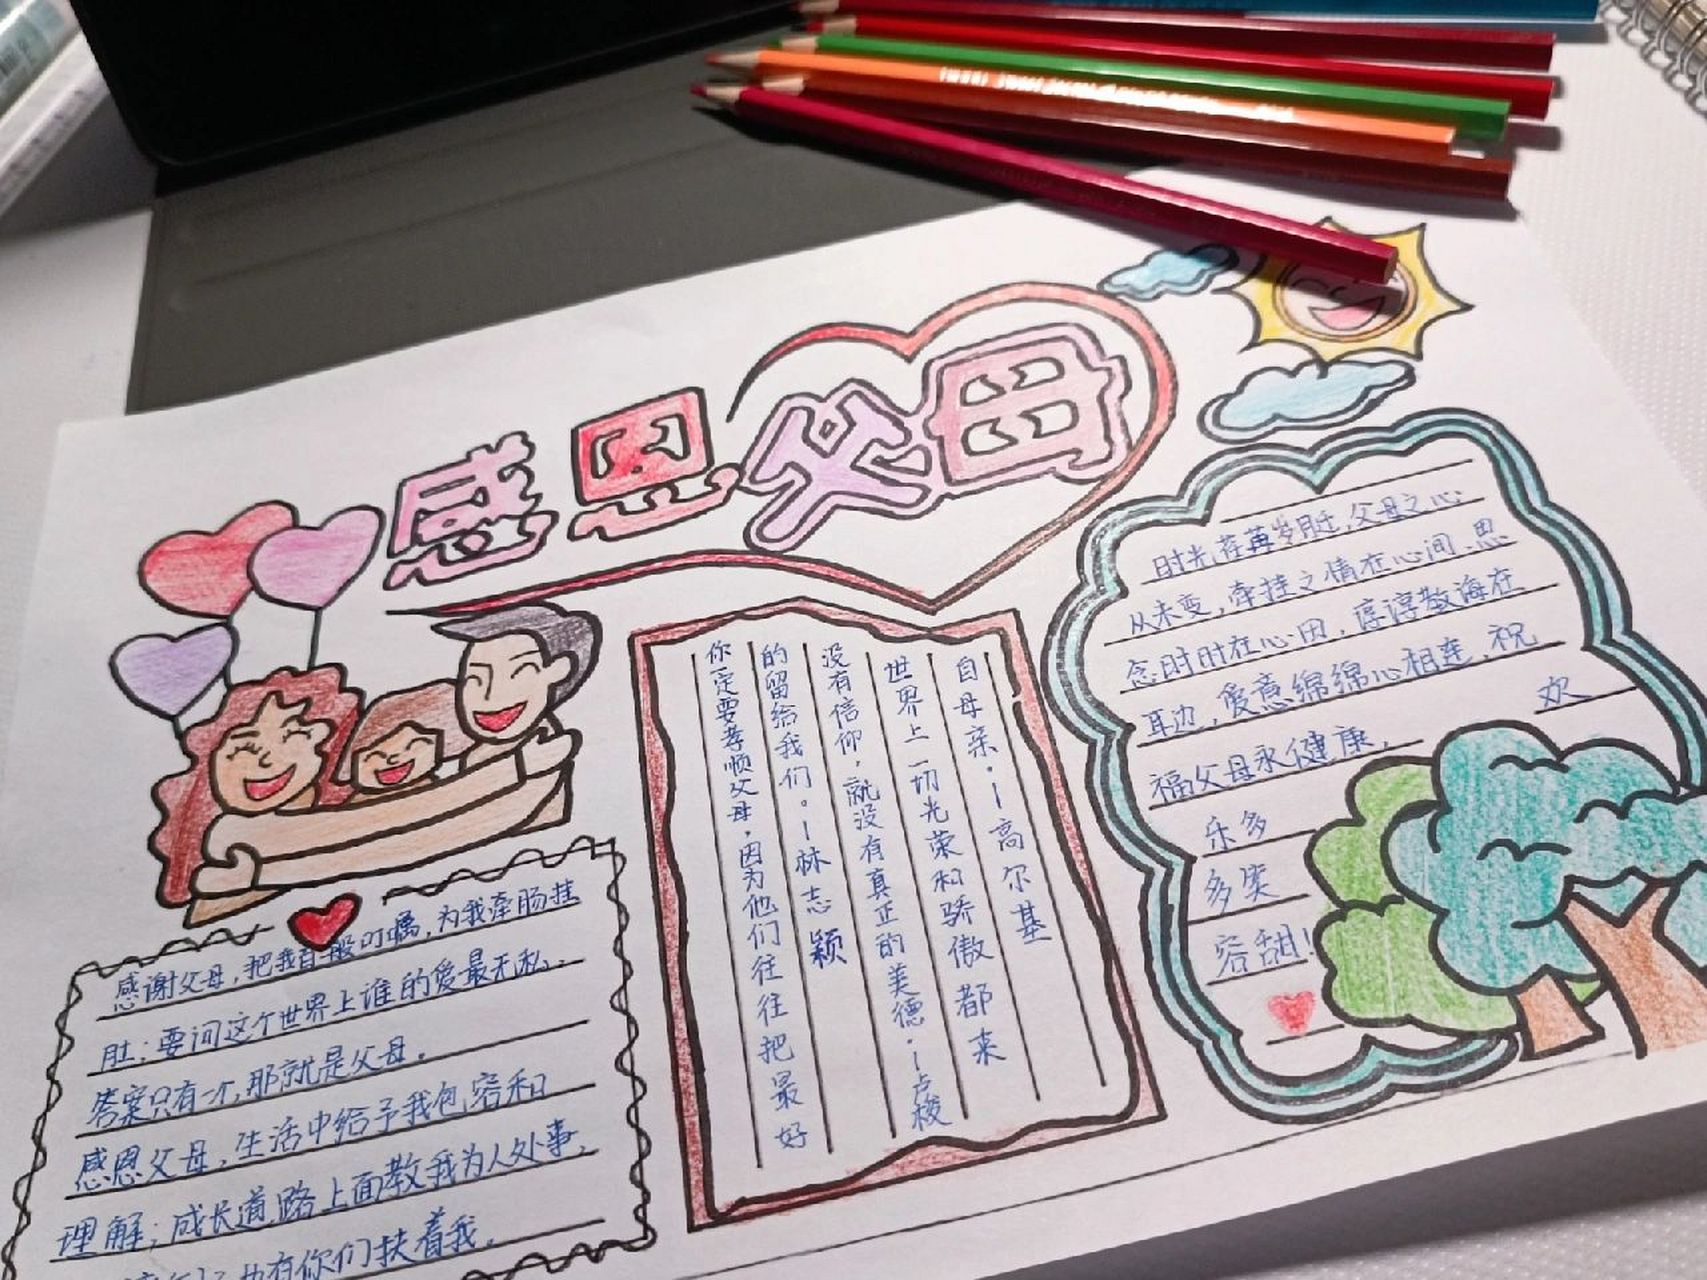 感恩父母
感谢父母，把我百般叮嘱，为我牵肠挂
肚；要问这个世界上谁的爱最无私，
答案只有一个，那就是父母。
感恩父母，生活中给予我包容和
理解；成长道路上面教我为人处事，
有你们扶着我。
自母亲。—高尔基
世界上一切光荣和骄傲都来
没有信仰，就没有真正的美德。—卢梭
的留给我们。—林志颖
你一定要孝顺父母，因为他们往往把最好
时光荏苒岁月迁，父母之心
从未变，牵挂之情在心间，思
念时时在心田，谆谆教海在
耳边，爱意绵绵心相连，祝
福父母永健康，
欢
乐多
多笑
容甜！